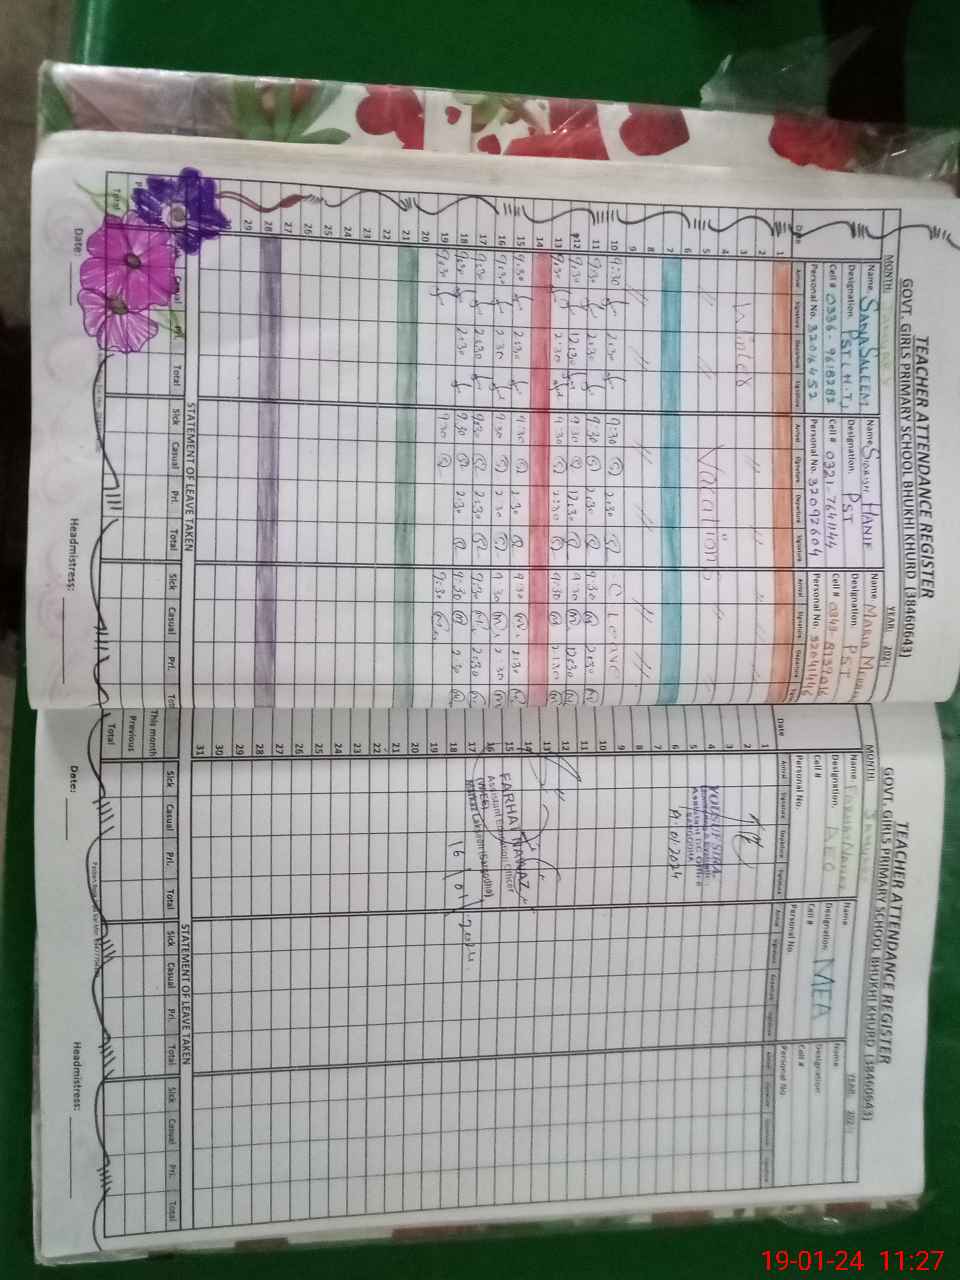 TEACHER ATTENDANCE REGISTER
GOVT. GIRLS PRIMARY SCHOOL BHUKHI KHURD (38460643)
MONTH: JANUARY YEAR: 2024
Name. SANA SALEEM Name. SIDRISH HANIF Name MARIA
Designation. PST L.H.T, Designation. PST Designation. PST
Cell # 0336-9618282 Cell # 0321-7641144 Cell #
Personal No. 32016452 Personal No. 32092604 Personal No. 32041446
Date Arrival Signature Departure Signature Arrival Signature Departure Signature Arrival Signature Departure
1
2
3 Winter Vacations
4
5
6
7
8
9
10 9:30 2:30 9:30 2:30 C Leave
11 9:30 2:30 9:30 2:30 9:30 2:30
12 9:30 12:30 9:30 12:30 9:30 12:30
13 9:30 2:30 9:30 2:30 9:30 2:30
14
15 9:30 2:30 9:30 2:30 9:30 2:30
16 9:30 2:30 9:30 2:30 9:30 2:30
17 9:30 2:30 9:30 2:30 9:30 2:30
18 9:30 2:30 9:30 2:30 9:30 2:30
19 9:30 9:30 9:30
20
21
22
23
24
25
26
27
28
29
STATEMENT OF LEAVE TAKEN
Casual Pri. Total Sick Casual Pri. Total Sick Casual Pri.
Total
Date: Headmistress:
TEACHER ATTENDANCE REGISTER
GOVT. GIRLS PRIMARY SCHOOL BHUKHI KHURD (38460643)
MONTH: JANUARY YEAR: 2024
Name FARHAT NAWAZ Name Name
Designation. AEO Designation. MEA Designation.
Cell # Cell # Cell #
Personal No. Personal No. Personal No.
Date Arrival Signature Departure Signature Arrival Signature Departure Signature Arrival Signature Departure Signature
1
2
3
4
5
6 9.01.2024
7
8
9
10
11
12
13
14
15 FARHAT NAWAZ
16 Assistant Education Officer
17 (WEE)
18 16/01/2024
19
20
21
22
23
24
25
26
27
28
29
30
31
STATEMENT OF LEAVE TAKEN
Sick Casual Pri. Total Sick Casual Pri. Total Sick Casual Pri. Total
This month
Previous
Total
Date: Headmistress:
19-01-24 11:27